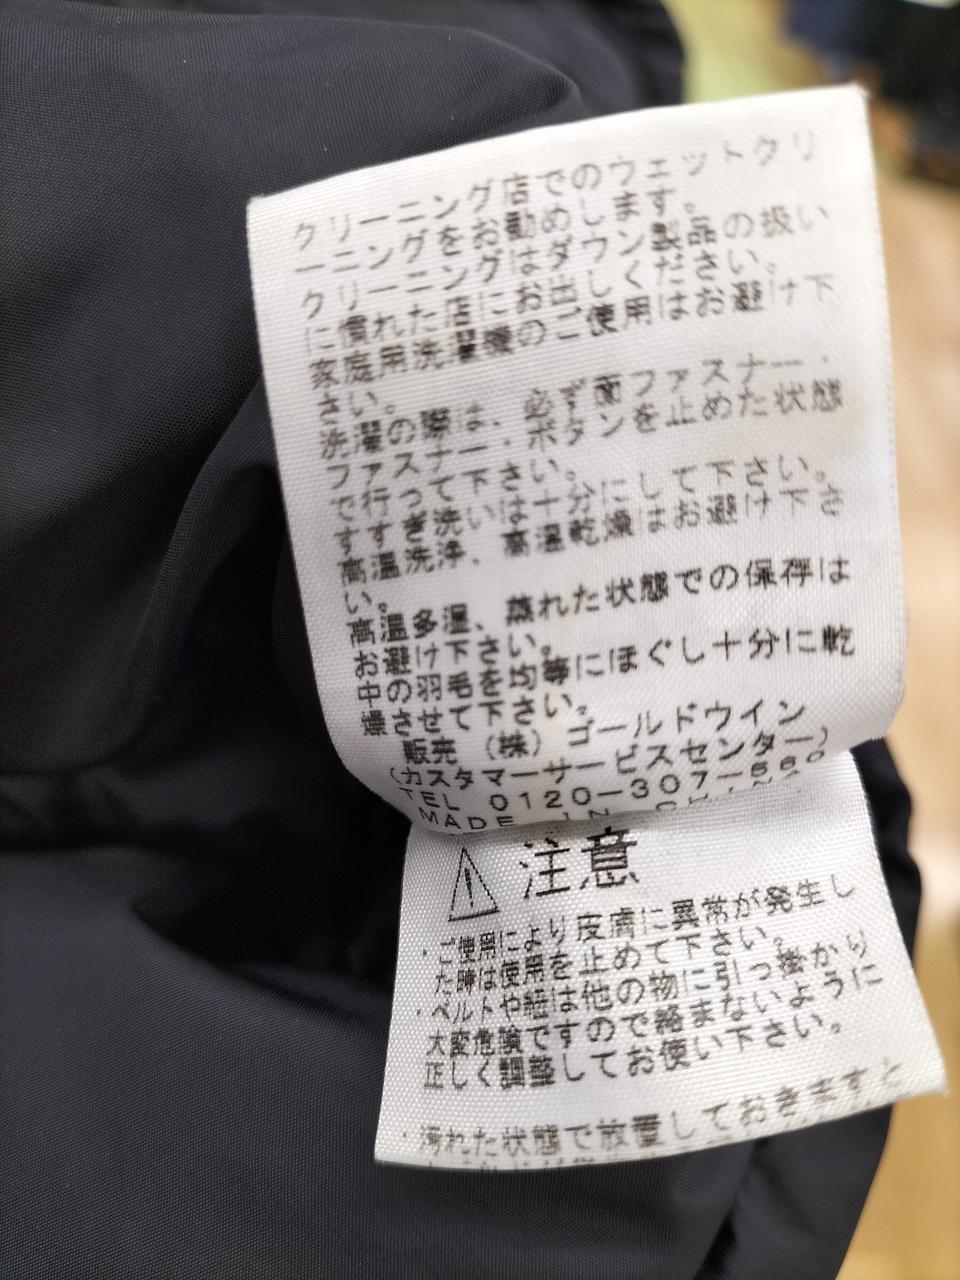 クリーニング店でのウェットクリ
ーニングをお勧めします。
クリーニングはダウン製品の扱い
に慣れた店にお出しください。
家庭用洗濯機のご使用はお避け下
さい。
洗濯の際は、必ず面ファスナー・
ファスナー・ボタンを止めた状態
で行って下さい。
すすぎ洗いは十分にして下さい。
高温洗浄、高温乾燥はお避け下さ
い。
高温多湿、蒸れた状態での保存は
お避け下さい。
中の羽毛を均等にほぐし十分に乾
燥させて下さい。
販売 (株) ゴールドウイン
(カスタマーサービスセンター)
TEL 0120-307-560
MADE IN CHINA
注意
・ご使用により皮膚に異常が発生し
た時は使用を止めて下さい。
・ベルトや紐は他の物に引っ掛かり
大変危険ですので絡まないように
正しく調整してお使い下さい。
・汚れた状態で放置しておきますと